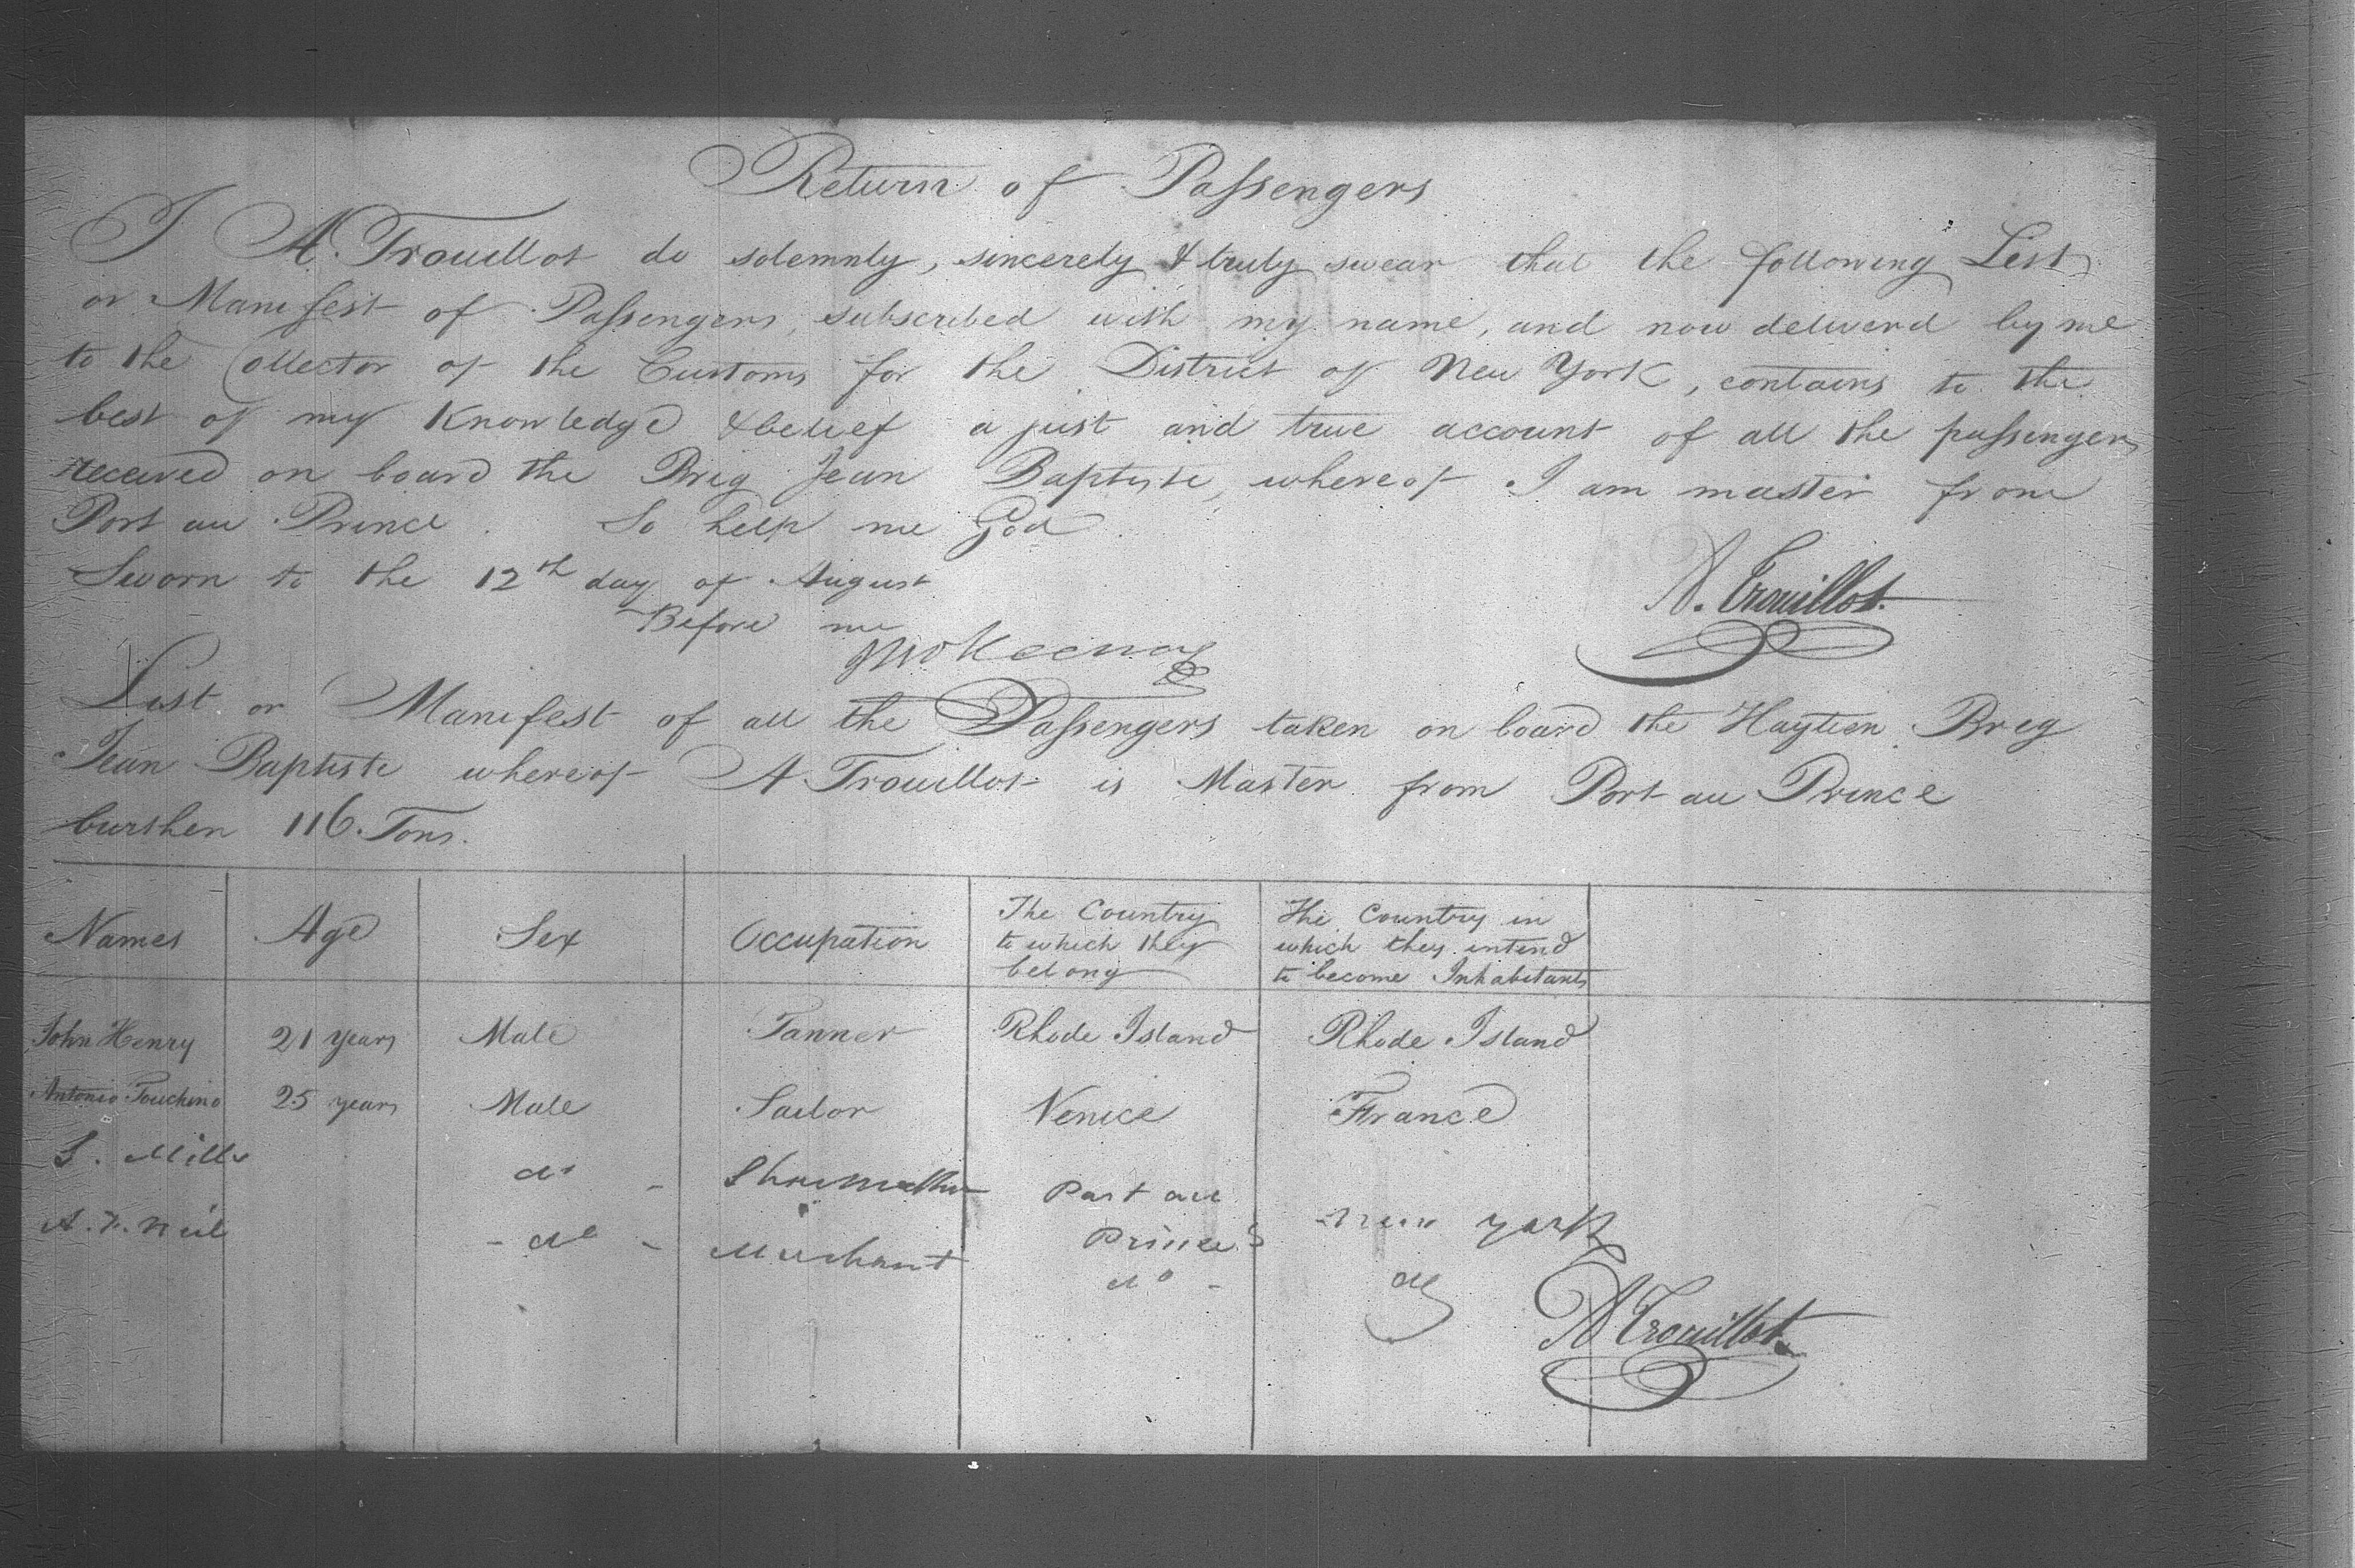 Return of Passengers
I A. Trouillot do solemnly, sincerely & truly swear that the following List
or Manifest of Passengers, subscribed with my name, and now deliverd by me
to the Collector of the Customs for the District of New York, contains to the
best of my Knowledge & belief a just and true account of all the passengers
received on board the Brig Jean Baptiste, whereof I am master from
Port au Prince. So help me God.
Sworn to the 12th day of August
Before me
A. Trouillot.
List or Manifest of all the Passengers taken on board the Haytien Brig
Jean Baptiste whereof A Trouillot is Master from Port au Prince
burthen 116. Tons.
Names Age Sex Occupation The Country to which they belong The Country in which they intend to become Inhabitants
John Henry 21 years Male Tanner Rhode Island Rhode Island
Antonio Touchino 25 years Male Sailor Venice France
S. Mills do - Shoemaker Port au Prince New York
A. F. Neil - do - Merchant do - do
A Trouillot